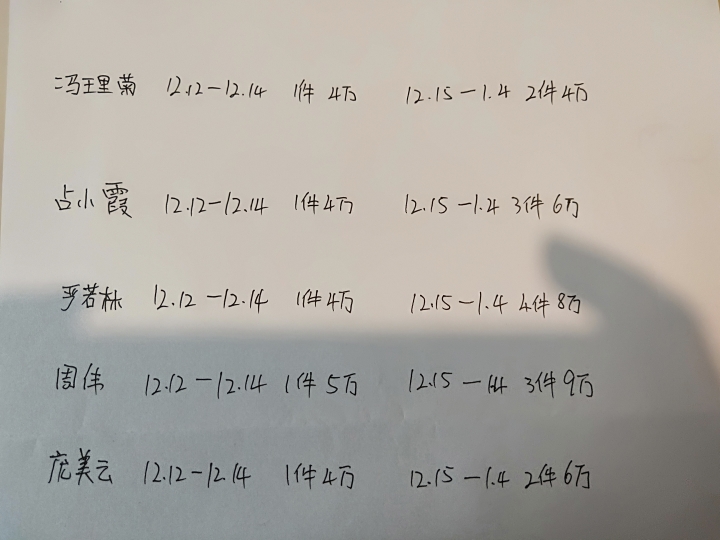 冯王里菊 12.12-12.14 1件 4万 12.15-1.4 2件4万
占小霞 12.12-12.14 1件4万 12.15-1.4 3件6万
严若林 12.12-12.14 1件4万 12.15-1.4 4件8万
周伟 12.12-12.14 1件5万 12.15-1.4 3件9万
庞美云 12.12-12.14 1件4万 12.15-1.4 2件6万